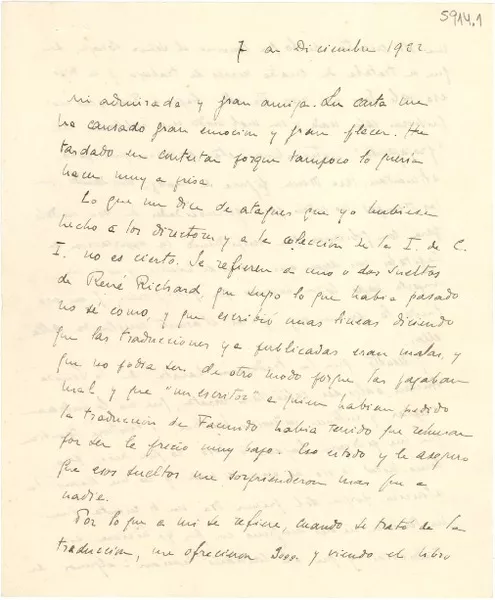 5914.1
7 de Diciembre 1922
Mi admirada y gran amiga. Su carta me
ha causado gran emoción y gran placer. He
tardado en contestar porque tampoco lo quería
hacer muy a prisa.
Lo que me dice de ataques que yo hubiese
hecho a los directores y a la colección de la I. de C.
I. no es cierto. Se refieren a uno o dos sueltos
de René Richard, que supo lo que había pasado
no sé como, y que escribió unas líneas diciendo
que las traducciones ya publicadas eran malas, y
que no podía ser de otro modo porque las pagaban
mal, y que "un escritor" a quien habían pedido
la traducción de Facundo había tenido que rehusar
por ser el precio muy bajo. Eso es todo y le aseguro
que esos sueltos me sorprendieron mas que a
nadie.
Por lo que a mi se refiere, cuando se trató de la
traducción, me ofrecieron 3000 y viendo el libro